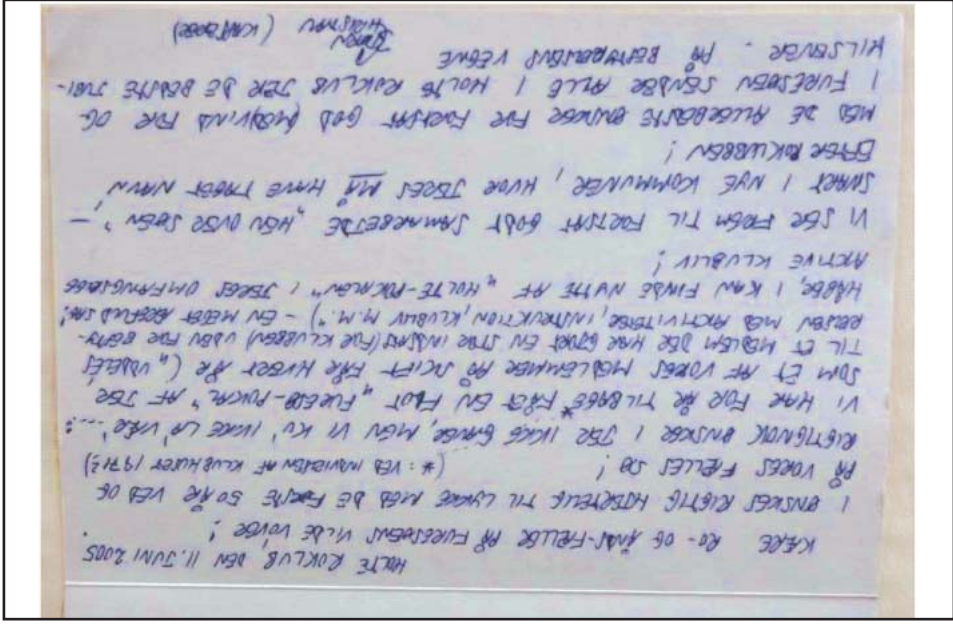 HOLTE ROKLUB, DEN 11. JUNI 2005
KÆRE RO- OG ÅNDS-FÆLLER PÅ FURESØENS VILDE VOVER!
I ØNSKES RIGTIG HJERTELIG TIL LYKKE MED DE FØRSTE 50 ÅR VED OG
PÅ VORES FÆLLES SØ! (*: VED INDVIELSEN AF KLUBHUSET 1971?)
RIGTIGNOK ØNSKER I JER IKKE GAVER, MEN VI KU' IKKE LA' VÆR'....:
VI HAR FOR ÅR TILBAGE* FÅET EN FLOT "FURESØ-POKAL" AF JER
SOM ET AF VORES MEDLEMMER PÅ SKIFT FÅR HVERT ÅR ("UDDELES
TIL ET MEDLEM DER HAR GJORT EN STOR INDSATS (FOR KLUBBEN) UDEN FOR BESTY-
RELSEN MED AKTIVITETER, INSTRUKTION, KLUBLIV M.M.") - EN MEGET ÆREFULD SAG!
HÅBER, I KAN FINDE NYTTE AF "HOLTE-POKALEN" I JERES OMFANGSRIGE
AKTIVE KLUBLIV!
VI SER FREM TIL FORTSAT GODT SAMARBEJDE "HEN OVER SØEN", -
SNART I NYE KOMMUNER, HVOR JERES MÅ HAVE TAGET NAVN
EFTER ROKLUBBEN!
MED DE ALLERBEDSTE ØNSKER FOR FORTSAT GOD (MED)VIND FOR OG
I FURESØEN SENDER ALLE I HOLTE ROKLUB JER DE BEDSTE JUBI-
HILSENER - PÅ BESTYRELSENS VEGNE
(KASSERER)